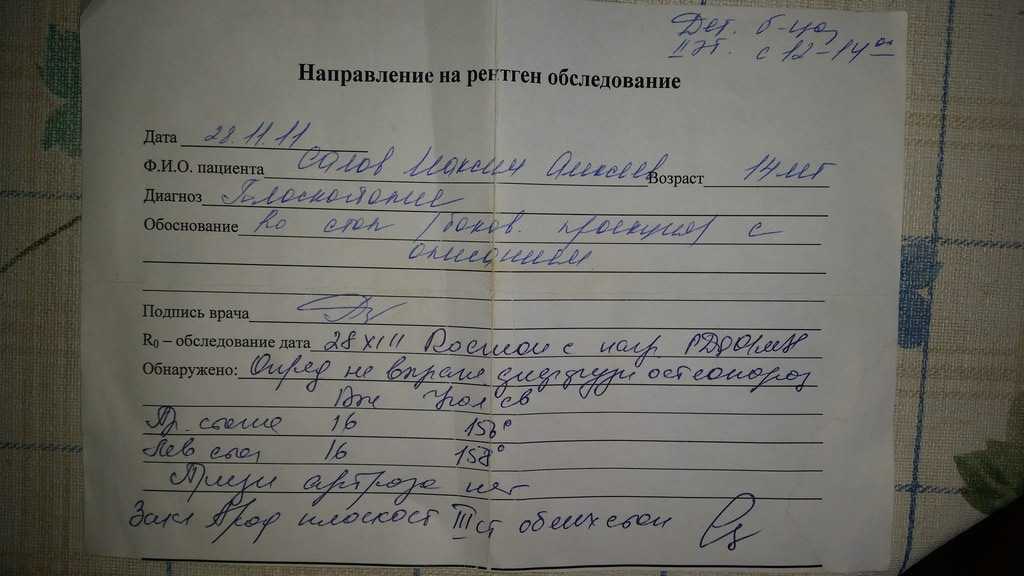 Дет. б-ца
II эт. с 12-14 00
Направление на рентген обследование
Дата 28.11.11
Ф.И.О. пациента Салов Максим Алексеев Возраст 14 лет
Диагноз Плоскостопие
Обоснование Ro стоп (боков. проекция) с
описанием
Подпись врача
R0 – обследование дата 28 XI 11 Rостоп с нагр
Обнаружено: Опред не выраж диффузн остеопороз
Вы Угол св
Пр. стопа 16 156°
Лев стоп 16 158°
Призн артроза нет
Закл Прод плоскост III ст обеих стоп